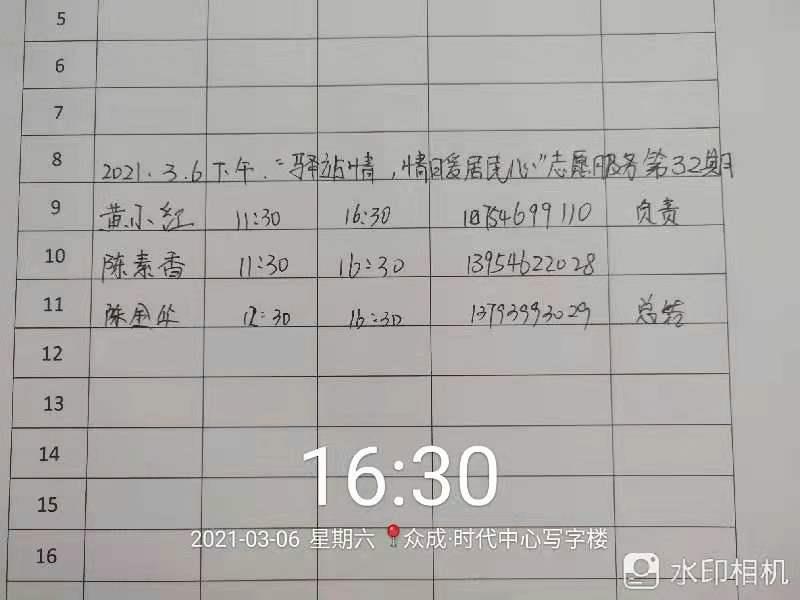 5
6
7
8 2021.3.6下午.“驿站情,情暖居民心”志愿服务第32期
9 黄小红 11:30 16:30 18754699110 负责
10 陈素香 11:30 16:30 13954622028
11 陈金华 12:30 16:30 13793993029 总结
12
13
14
15
16
16:30
2021-03-06 星期六 众成·时代中心写字楼
水印相机